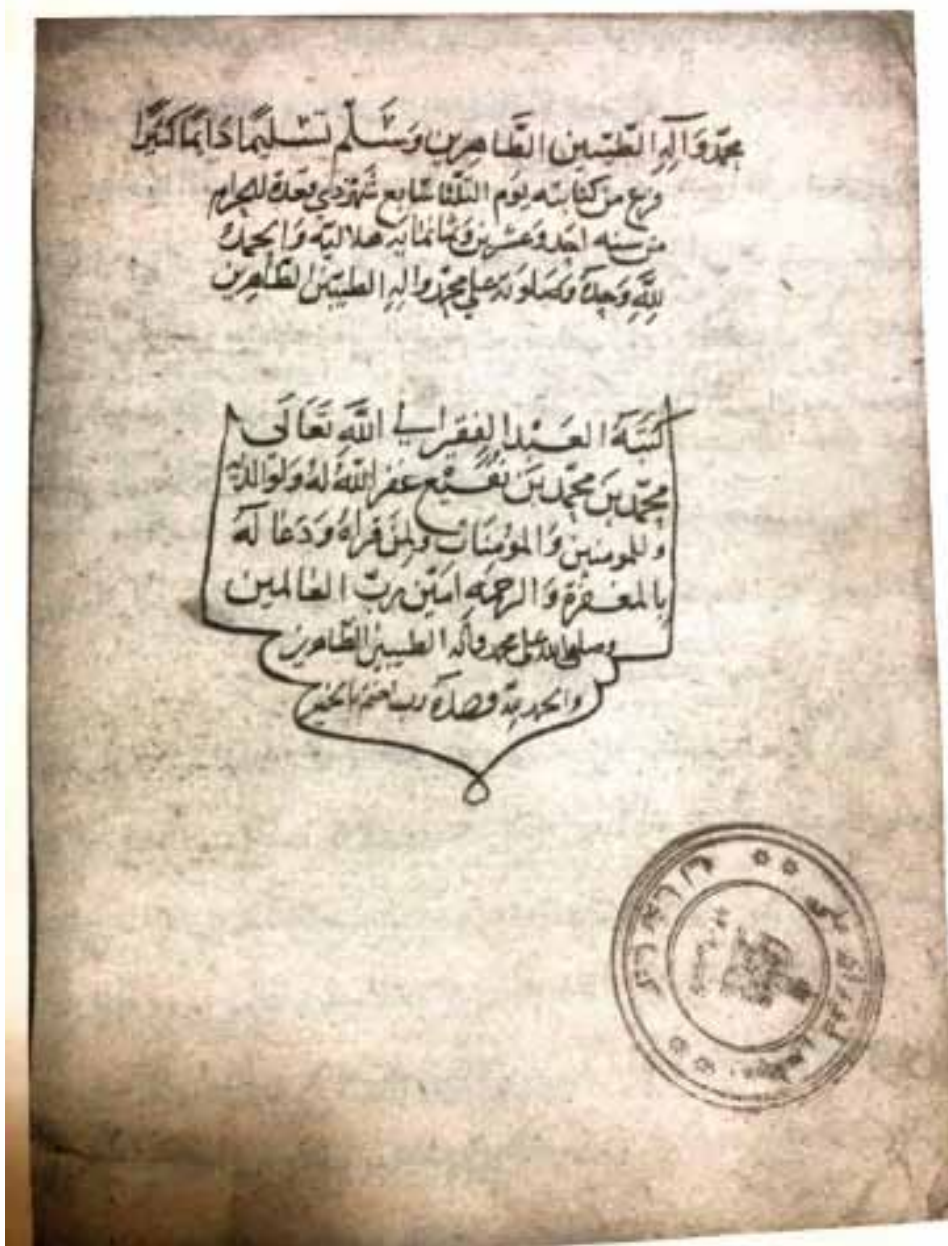 محمد وَآلِهِ الطَّيِّبين الطَّاهِرين وَسَلَّم تَسْليمًا دَايمًا كَثيرًا
فرغ من كتابته يوم الثلثا سابع شهر ذي قعدة الحرام
من سنه احد وعشرين وثمانمايه هلالية وَالحمد
لِلَّهِ وَحدَهُ وصَلوته علي محمد واله الطيبين الطاهِرين
كَتبَهُ العَبْد الفقير الي اللَّه تَعَالَى
محمّد بن محمّد بن نفيع غفر اللَّهُ لهُ ولوالديه
وللمومنين وَالمومنَات ولمن قراهُ وَدَعَا لَهُ
بالمغفرة وَالرحمه امين ربّ العَالمين
وصلى الله على محمد وآله الطيبين الطاهرين
والحمد لله وحده رب اختم بالخير